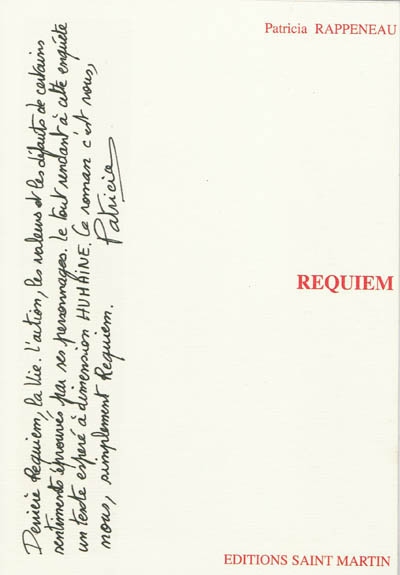 Patricia RAPPENEAU
REQUIEM
EDITIONS SAINT MARTIN
Derrière Requiem, la Vie. L'action, les valeurs et les défauts de certains
sentiments éprouvés par ses personnages. Le tout rendant à cette enquête
un texte espéré à dimension HUMAINE. Ce roman c'est nous,
nous, simplement Requiem.
Patricia